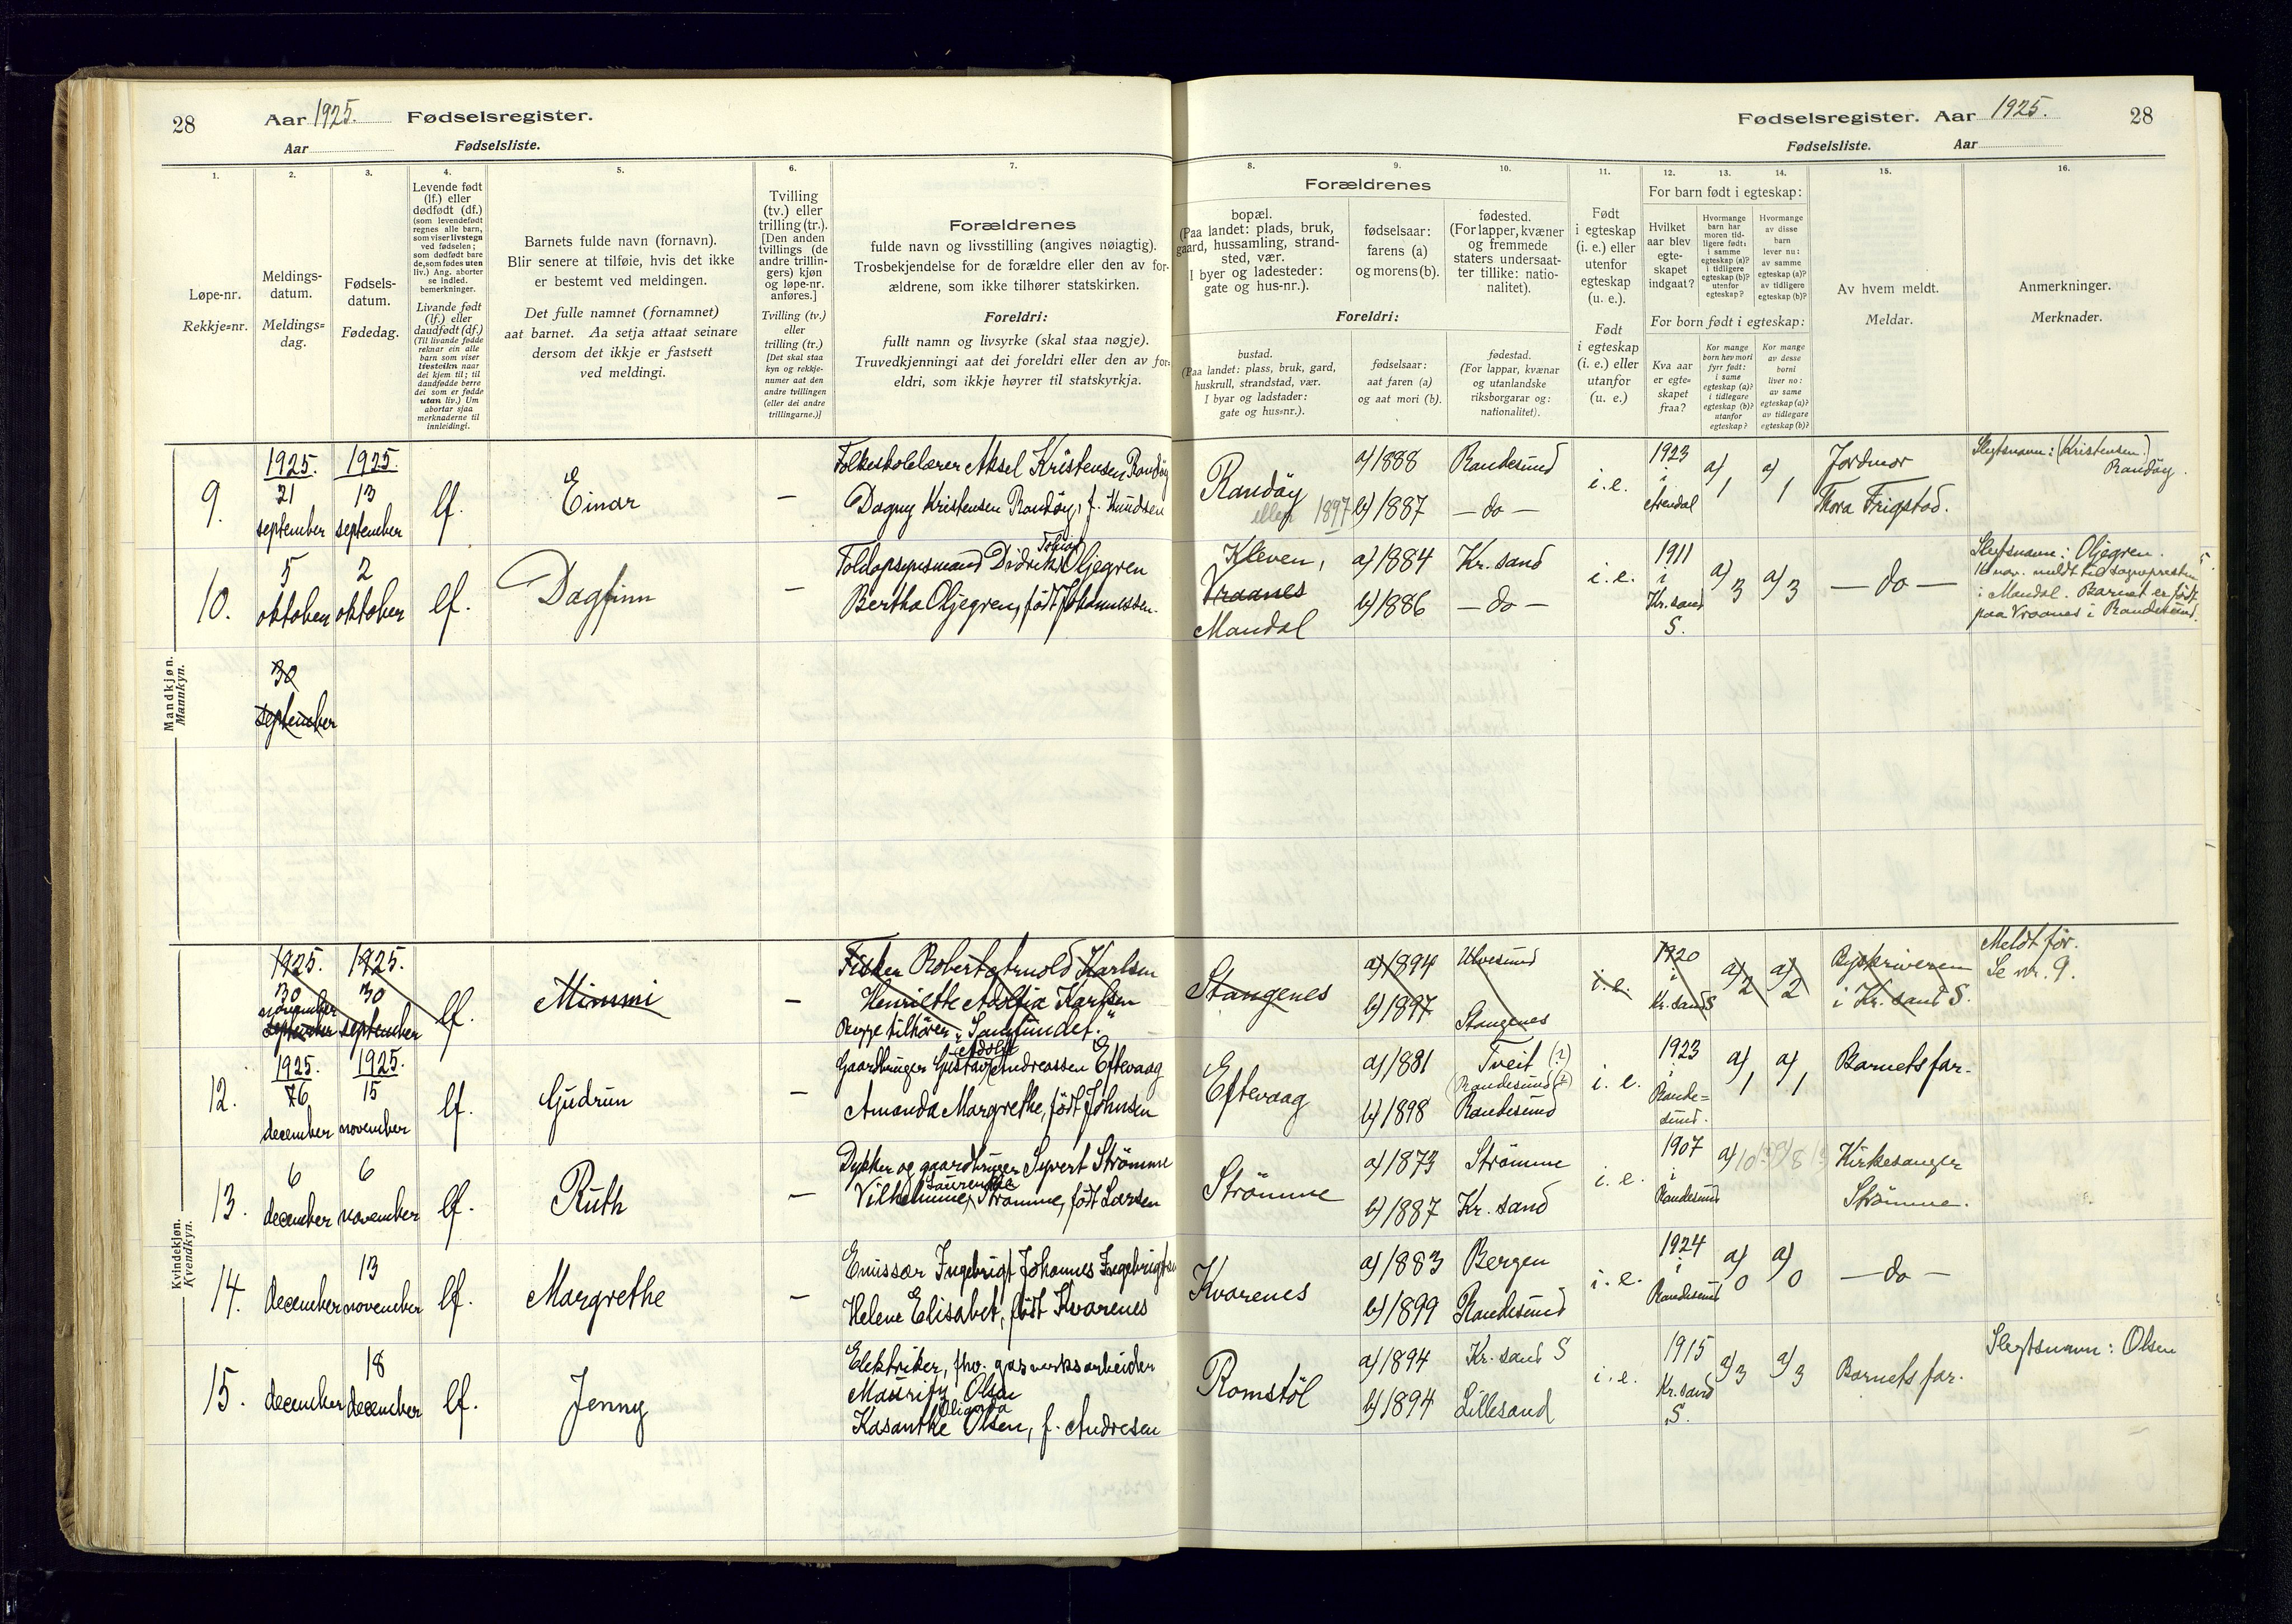 28
Aar 1925. Fødselsregister.
Aar Fødselsliste.
1.
Løpe-nr.
Rekkje=nr.
2.
Meldings-
datum.
Meldings=
dag.
3.
Fødsels-
datum.
Fødedag.
4.
Levende født
(lf.) eller
dødfødt (df.)
(som levendefødt
regnes alle barn,
som viser livstegn
ved fødselen;
som dødfødt bare
de, som fødes uten
liv.) Ang. aborter
se indled.
bemerkninger.
Livande født
(lf.) eller
daudfødt (df.)
(Til livande fødde
reknar ein alle
barn som viser
livsteikn naar
dei kjem til; til
daudfødde berre
dei som er fødde
utan liv.) Um
abortar sjaa
merknaderne til
innleidingi.
5.
Barnets fulde navn (fornavn).
Blir senere at tilføie, hvis det ikke
er bestemt ved meldingen.
Det fulle namnet (fornamnet)
aat barnet. Aa setja attaat seinare
dersom det ikkje er fastsett
ved meldingi.
6.
Tvilling
(tv.) eller
trilling (tr.).
[Den anden
tvillings (de
andre trillin-
gers) kjøn
og løpe-nr.
anføres.]
Tvilling (tv.)
eller
trilling (tr.)
[Det skal staa
kyn og rekkje-
numer aat den
andre tvillingen
(eller dei andre
trillingarne.)]
7.
Forældrenes
fulde navn og livsstilling (angives nøiagtig).
Trosbekjendelse for de forældre eller den av for-
ældrene, som ikke tilhører statskirken.
Foreldri:
fullt namn og livsyrke (skal staa nøgje).
Truvedkjenningi aat dei foreldri eller den av for-
eldri, som ikkje høyrer til statskyrkja.
Fødselsregister. Aar 1925.
28
Fødselsliste. Aar
Forældrenes
8.
bopæl.
(Paa landet: plads, bruk,
gaard, hussamling, strand-
sted, vær.
I byer og ladesteder:
gate og hus-nr.).
9.
fødselsaar:
farens (a)
og morens (b).
10.
fødested.
(For lapper, kvæner
og fremmede
staters undersaat-
ter tillike: natio-
nalitet).
Foreldri:
bustad.
(Paa landet: plass, bruk, gard,
huskrull, strandstad, vær.
I byar og ladstader:
gate og hus=nr.).
fødselsaar:
aat faren (a)
og aat mori (b).
fødestad.
(For lappar, kvænar
og utanlandske
riksborgarar og:
nationalitet).
11.
Født
i egteskap
(i. e.) eller
utenfor
egteskap
(u. e.).
Født
i egteskap
(i. e.) eller
utanfor
(u. e.)
12. 13. 14.
For barn født i egteskap:
Hvilket
aar blev
egte-
skapet
indgaat?
Hvormange
barn har
moren tid-
ligere født:
i samme
egteskap (a)?
i tidligere
egteskap (b)?
utenfor
egteskap?
Hvormange
av disse
barn
lever nu:
av samme
egteskap (a)?
av tidligere
egteskap (b)?
For born født i egteskap:
Kva aar
er egte=
skapet
fraa?
Kor mange
born hev mori
fyrr født:
i same
egteskap (a)?
i tidlegare
egteskap (b)?
utanfor
egteskap?
Kor mange
av desse
borni
liver no:
av same
egteskap (a)?
av tidlegare
egteskap (b)?
15.
Av hvem meldt.
Meldar.
16.
Anmerkninger.
Merknader.
Mandkjøn.
Mannkyn.
9.
1925.
21
september
1925.
13
september
lf.
Einar
—
Folkeskolelærer Aksel Kristensen Randöy
Dagny Kristensen Randöy, f. Knudsen
Randöy
eller 1897
a) 1888
b) 1887
Randesund
— do —
i. e.
1923
i
Arendal
a) 1
a) 1
Jordmor
Thora Frigstad.
Slegtsnavn: (Kristensen)
Randöy.
10.
5
oktober
2
oktober
lf.
Dagfinn
—
Tobias
Toldopsynsmand Didrik Oljegren
Bertha Oljegren, født Johannessen.
Kleven,
Vraanes
Mandal
a) 1884
b) 1886
Kr. sand
— do —
i. e.
1911
i
Kr. sand
S.
a) 3
a) 3
— do —
Slegtsnavn: Oljegren.
16 nov. meldt til sognepresten
i Mandal. Barnet er født
paa Vraanes i Randesund.
30
september
Kvindekjøn.
Kvendkyn.
1925.
30
november
september
1925.
30
september
lf.
Mimmi
—
Fisker Robert Arnold Karlsen
Henriette Adolfia Karlsen
Begge tilhører "Samfundet."
Stangenes
a) 1894
b) 1897
Ulvesund
Stangenes
i. e.
1920
i
Kr. sand S
a) 2
a) 2
Byskriveren
i Kr. sand S.
Meldt før.
Se nr. 9.
12.
1925.
16
december
1925.
15
november
lf.
Gudrun
—
Adolf
Gaardbruger Gustav Andreassen Eftevaag
Amanda Margrethe, født Johnsen
Eftevaag
a) 1881
b) 1898
Tveit (?)
(Randesund (?)
Randesund
i. e.
1923
i
Rande=
sund.
a) 1
a) 1
Barnets far.
13.
6
december
6
november
lf.
Ruth
—
Dykker og gaardbruger Syvert Strömme
Laurentze
Vilhelmine Strömme, født Larsen
Strömme
a) 1873
b) 1887
Strömme
Kr. sand
i. e.
1907
i
Randesund
a) 10
a) 8
Kirkesanger
Strömme.
14.
december
13
november
lf.
Margrethe
—
Emissær Ingebrigt Johannes Ingebrigtsen
Helene Elisabet, født Kvarenes
Kvarenes
a) 1883
b) 1899
Bergen
Randesund
i. e.
1924
i
Randesund
a) 0
a) 0
— do —
15.
december
18
december
lf.
Jenny
Elektriker, fhv. gasverksarbeider
Mauritz Olsen
Kasanthe Olsen, f. Andresen
Romstöl
a) 1894
b) 1894
Kr. sand S
Lillesand
i. e.
1915
Kr. sand
S.
a) 3
a) 3
Barnets far.
Slegtsnavn: Olsen